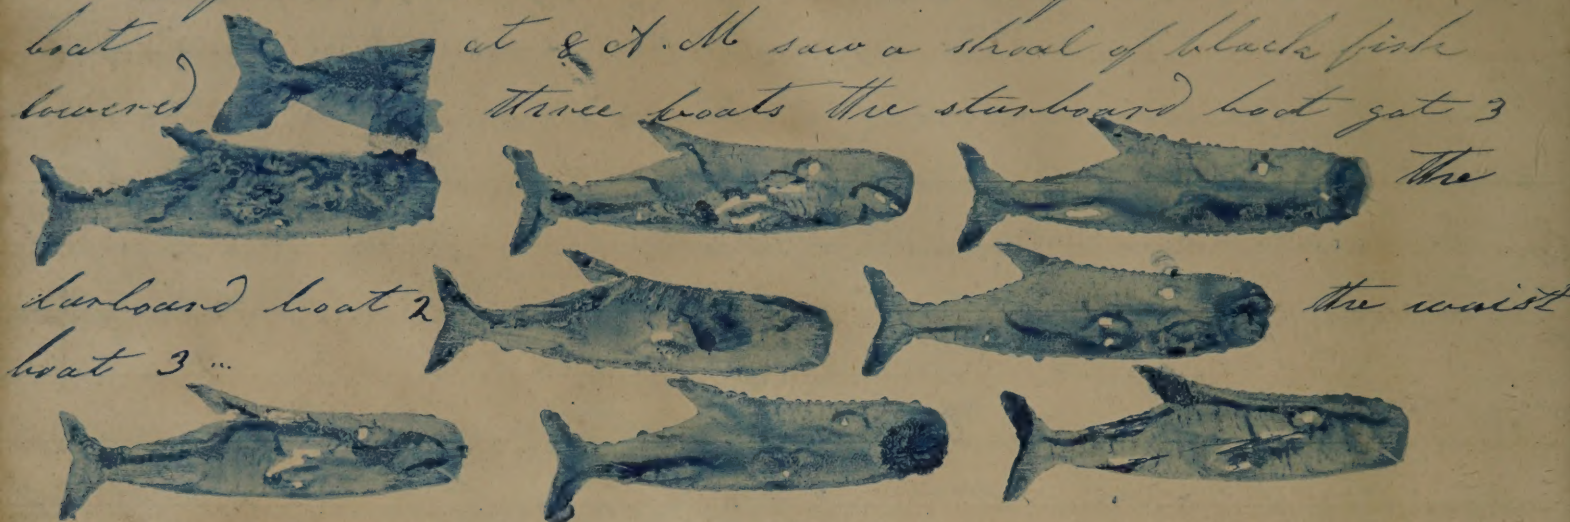 boat at 8 A.M saw a shoal of black fish
lowered three boats the starboard boat got 3
the
larboard boat 2 the waist
boat 3